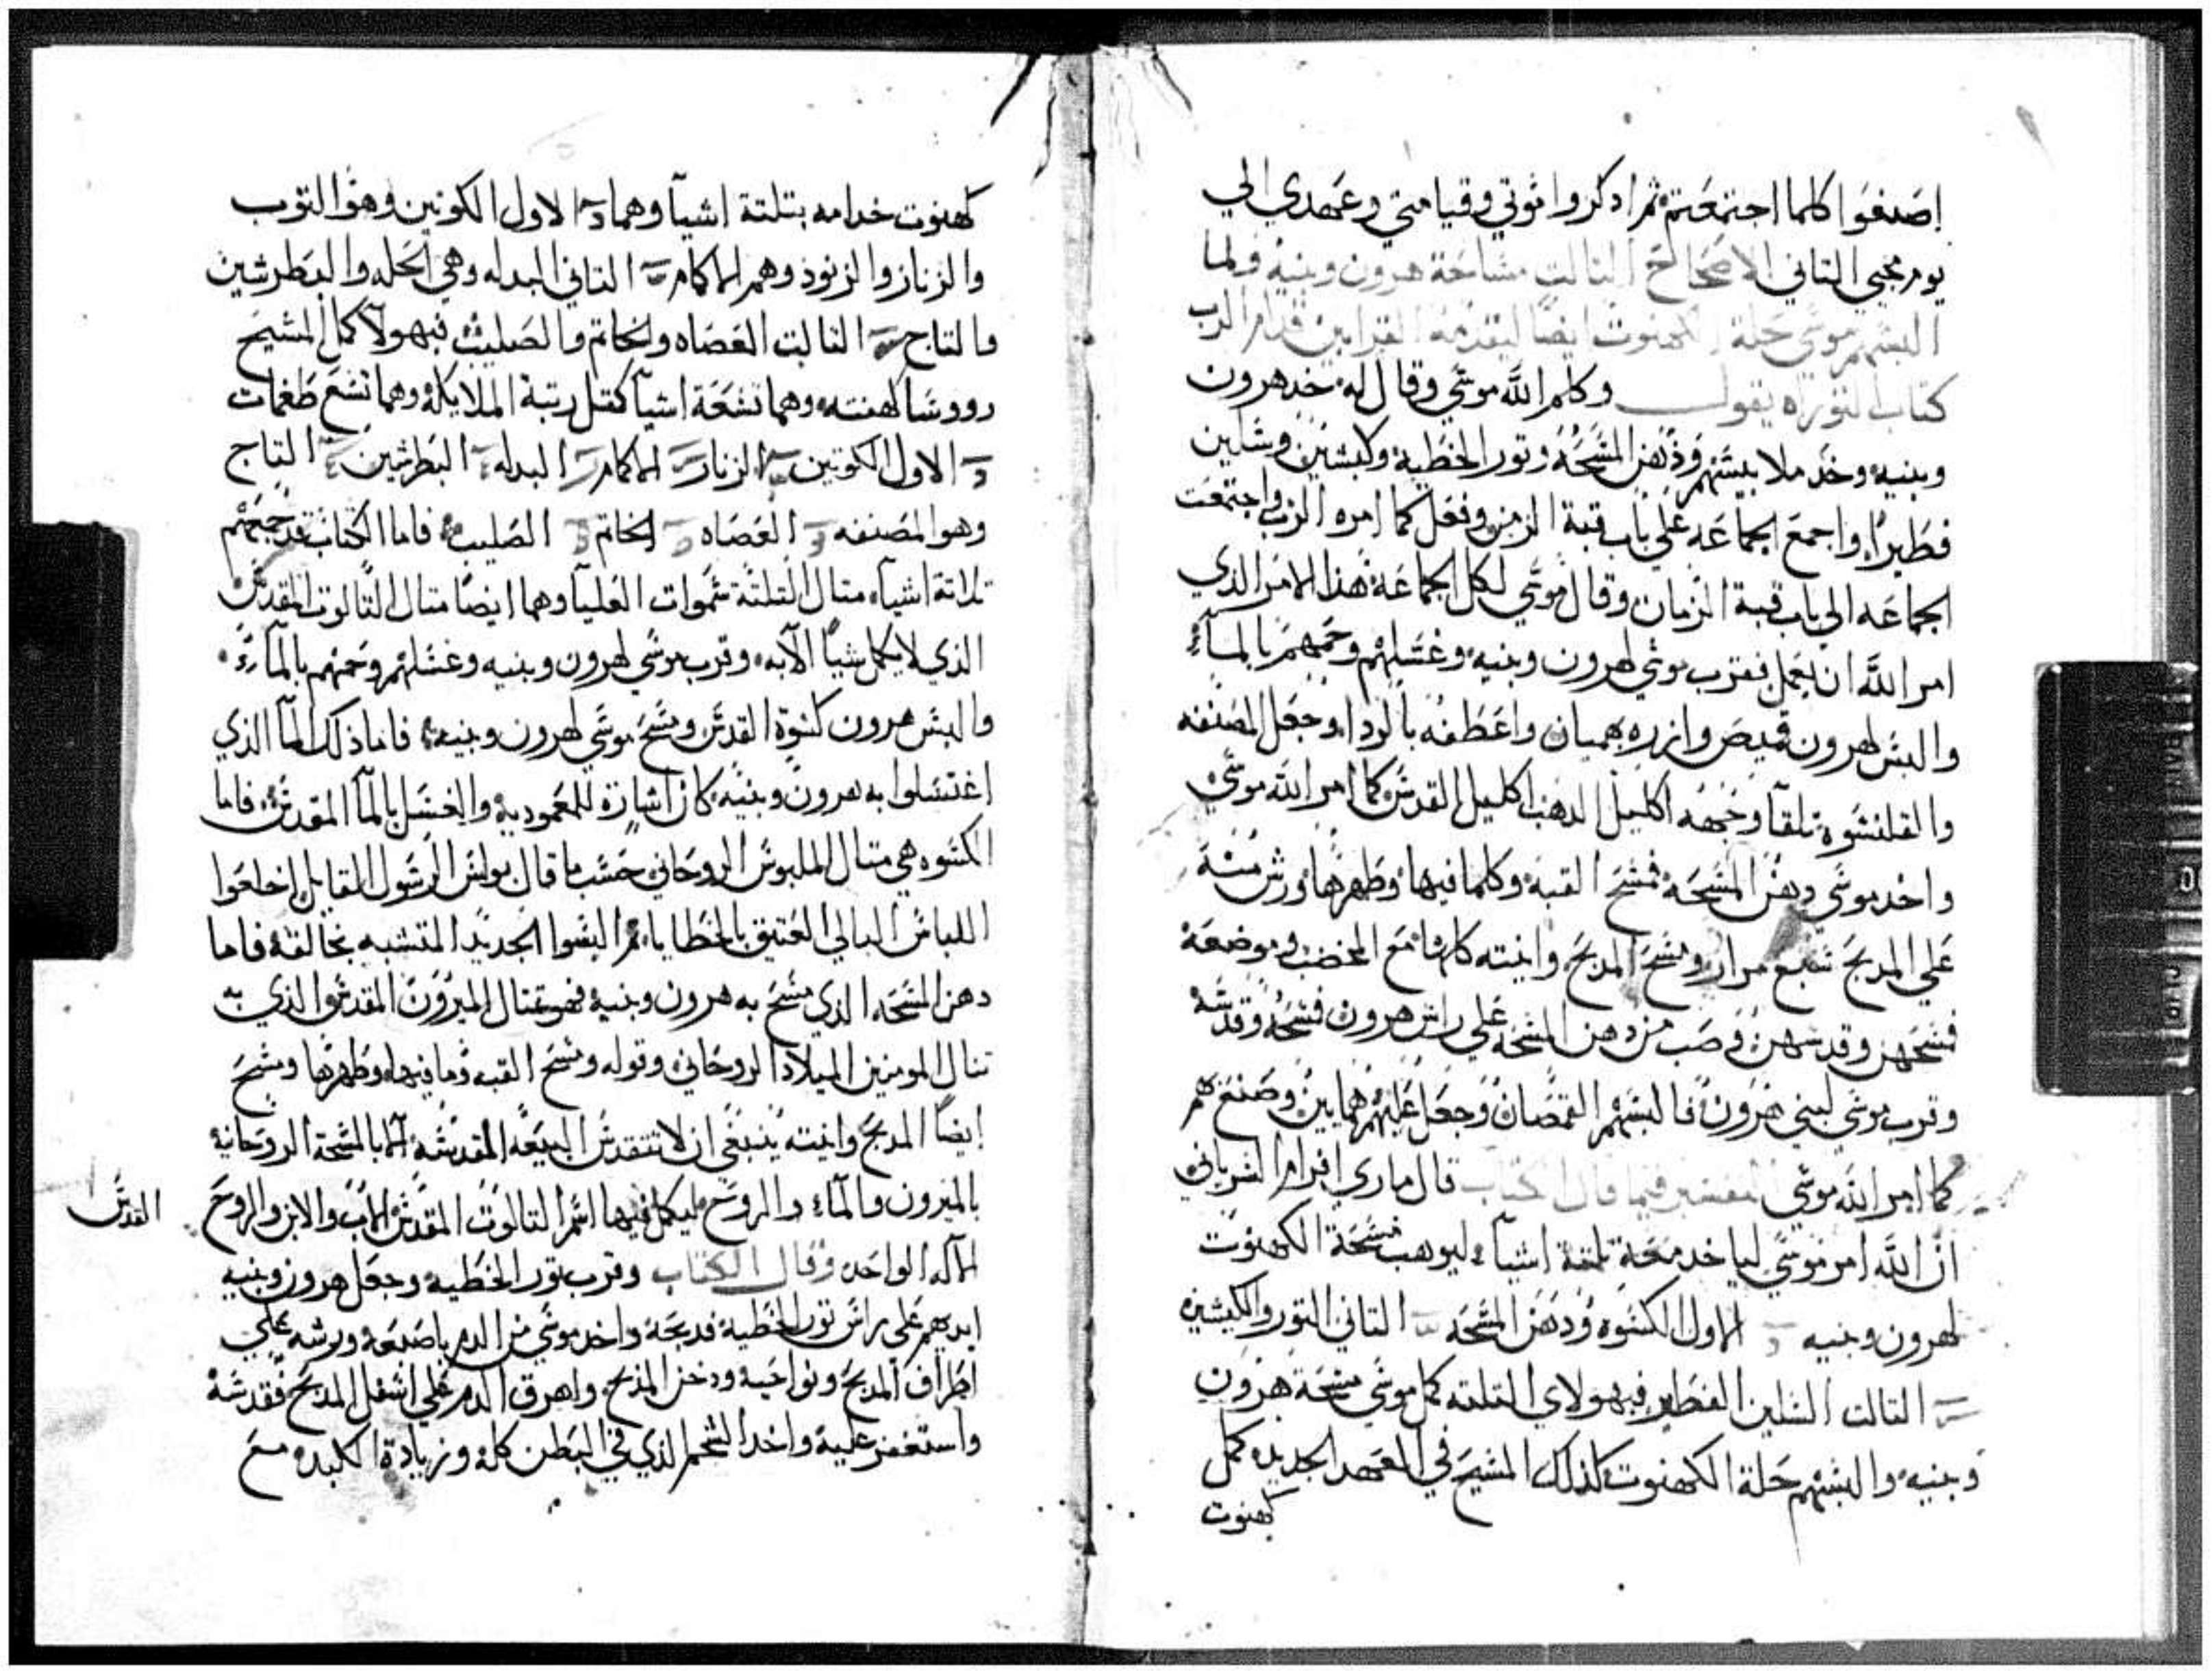 إصنعوا كلما اجتمعتم ثم ادكروا موتي وقيامتي وعهدي الي
يوم مجيي التاني الاصحاح التالت مشاحة هرون وبنيه ولما
البسهم موسي حلة الكهنوت ايضا ليقدمة القرابين قدام الرب
كتاب التوراه يقول وكلم اللّه موسي وقال له خد هرون
وبنيه وخد ملابيسهم ودهن المسحه وتور الخطية وكبشين وسلين
فطيرا واجمع الجماعه علي باب قبة الزمن وفعل كما امره الرب واجتمعت
الجماعه الي باب قبة الزمان وقال موسي لكل الجماعة هدا الامر الدي
امر اللّه ان يعمل فقرب موسي لهرون وبنيه وغسلهم وحممهم بالمآء
والبس لهرون قميص وازره بهميان واعطفه بالردا وجعل المصنفه
والقلنسوه تلقا وجهه اكليل الدهب اكليل القدس كما امر اللّه موسي
واخد موسي دهن المسحه فمسح القبة وكلما فيها وطهرها ورش منه
علي المدبح سبع مرار ومسح المدبح وانيته كلها مع المخضب وموضعة
فمسحهن وقدسهن وصب من دهن المسحه علي راس هرون فمسحه وقدسه
وقرب موسي لبني هرون فالبسهم القمصان وجعل عليهم همايين وصنع لهم
كما امر اللّه موسي المفسر فيما قال الكتاب قال ماري افرام السرياني
ان اللّه امر موسي لياخد معه تلتة اشيآء ليوهب مسحة الكهنوت
لهرون وبنيه الاول الكسوه ودهن المسحه التاني التور والكبشين
التالت السلين الفطير فبهولاي التلته كمل موسي مسحة هرون
وبنيه والبسهم حلة الكهنوت كدلك المسيح في العهد الجديد كمل
كهنوت
كهنوت خدامه بتلتة اشيآ وهما الاول الكوتين وهو التوب
والزنار والزنود وهم الاكمام التاني البدله وهي الحله والبطرشين
والتاج التالت العصاه والخاتم والصليب فبهولآ كمل المسيح
رووسا كهنته وهما تسعة اشيآ كمتل رتبة الملايكة وهما تسع طغمات
الاول الكوتين الزنار الاكمام البدله البطرشين التاج
وهو المصنفه العصاه الخاتم الصليب فاما الكتاب قد جمعهم
تلاتة اشيآء متال التلتة سموات العليآ وهما ايضا متال التالوت المقدس
الدي لا يكمل شيآ الا به وقرب موسي لهرون وبنيه وغسلهم وحمهم بالمآء
والبس هرون كسوة القدس ومسح موسي لهرون وبنيه فاما دلك المآ الدي
اغتسلوا به هرون وبنيه كان اشارة للمعمودية والغسل بالمآ المقدس فاما
الكسوه هي متال الملبوس الروحاني حسب ما قال بولس الرسول القايل إخلعوا
اللباس البالي العتيق بالخطايا ثم البسوا الجديد المتشبه بخالقه فاما
دهن المسحه الدي مسح به هرون وبنيه فهو متال الميرون المقدس الدي به
تنال المومنين الميلاد الروحاني وقوله ومسح القبه وما فيها وطهرها ومسح
إيضا المدبح وانيته ينبغي ان لا تتقدس البيعه المقدسه الا بالمسحة الروحانية
بالميرون والمآء والروح ليكمل فيها اسم التالوت المقدس الاب والابن والروح
القدس
الاله الواحد وقال الكتاب وقرب تور الخطيه وجعل هرون وبنيه
ايديهم علي راس تور الخطية فدبحة واخد موسي من الدم باصبعه ورشه علي
اطراف المدبح ونواحيه ودخل المدبح واهرق الدم علي اسفل المدبح فقدسه
واستغفر عليه واخد الشحم الدي في البطن كله وزيادة الكبده مع